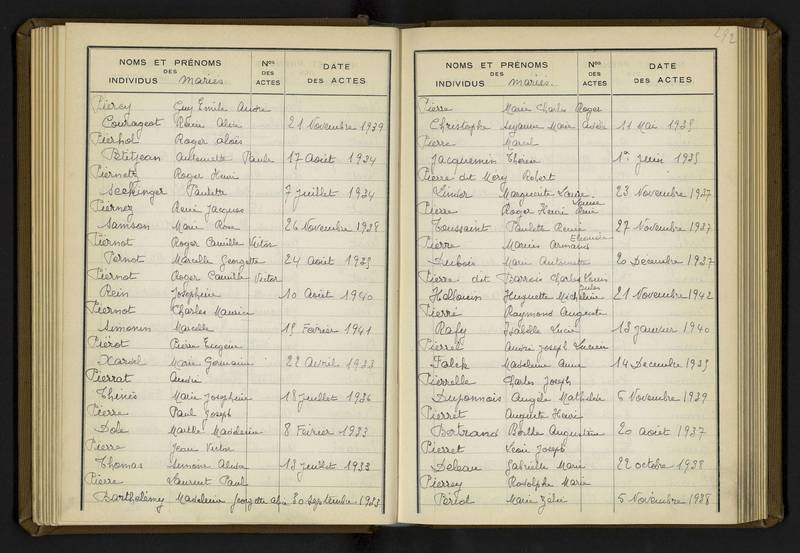 NOMS ET PRÉNOMS
DES
INDIVIDUS mariés
Nos
DES
ACTES
DATE
DES ACTES
Piercy Guy Emile André
Courageot Alice 21 Novembre 1939
Pierhol Roger Alois
Petitjean Antoinette Paule 17 Août 1934
Roger Henri
Seckinger Paulette 7 juillet 1934
Piernez René Jacques
Samson Marie Rose 26 Novembre 1938
Piernot Roger Camille Victor
Pernot Marcelle Georgette 24 Août 1935
Piernot Roger Camille Victor
Rein Joséphine 10 Août 1940
Piernot Charles Maurice
Simonin Marcelle 15 Février 1941
Piérot Pierre Eugène
Xardel Marie Germaine 22 Avril 1933
Pierrat André
Marie Joséphine 18 juillet 1936
Pierre Paul Joseph
Dole Marthe Madeleine 8 Février 1933
Pierre Jean Victor
Thomas Simone 13 juillet 1933
Pierre Laurent Paul
Barthélémy Madeleine Georgette 30 Septembre 1933
292
NOMS ET PRÉNOMS
DES
INDIVIDUS mariés.
Nos
DES
ACTES
DATE
DES ACTES
Pierre Marie Charles Roger
Christophe Suzanne Marie Adèle 11 Mai 1935
Pierre Marcel
Jacquemin Thérèse 1er Juin 1935
Pierre dit Méry Robert
Linder Marguerite Laure 23 Novembre 1937
Pierre Roger Henri
Toussaint Paulette Renée 27 Novembre 1937
Pierre Marius Armand
Dubois Marie Antoinette 20 Décembre 1937
Pierre dit Barrois Charles Louis
Jules
Huguette Micheline 21 Novembre 1942
Pierre Raymond Auguste
Rafy Isabelle Lucie 13 janvier 1940
Pierrel André Joseph Lucien
Falck Madeleine Anne 14 Décembre 1935
Pierrelle Charles Joseph
Duponnois Angèle Mathilde 5 Novembre 1939
Pierret Auguste Henri
Bertrand Berthe Augustine 20 août 1937
Pierret Léon Joseph
Deleau Gabrielle Marie 22 octobre 1938
Pierrey Rodolphe Marie
Périot Marie Zélie 5 Novembre 1938